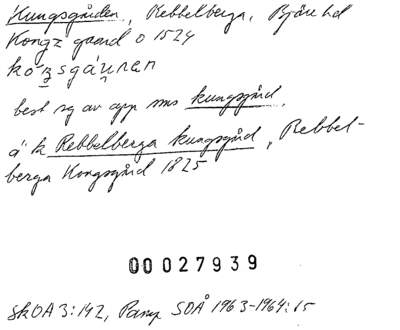 Kungsgården, Rebbelberga, Bjäre hd
Kongz gaard o 1524
kóŋsgáu̯nan
best sg av app sms kungsgård.
ä. k Rebbelberga kungsgård, Rebbel-
berga Kongsgård 1825
00027939
SkOA 3:142, Pamp SOÅ 1963-1964:15